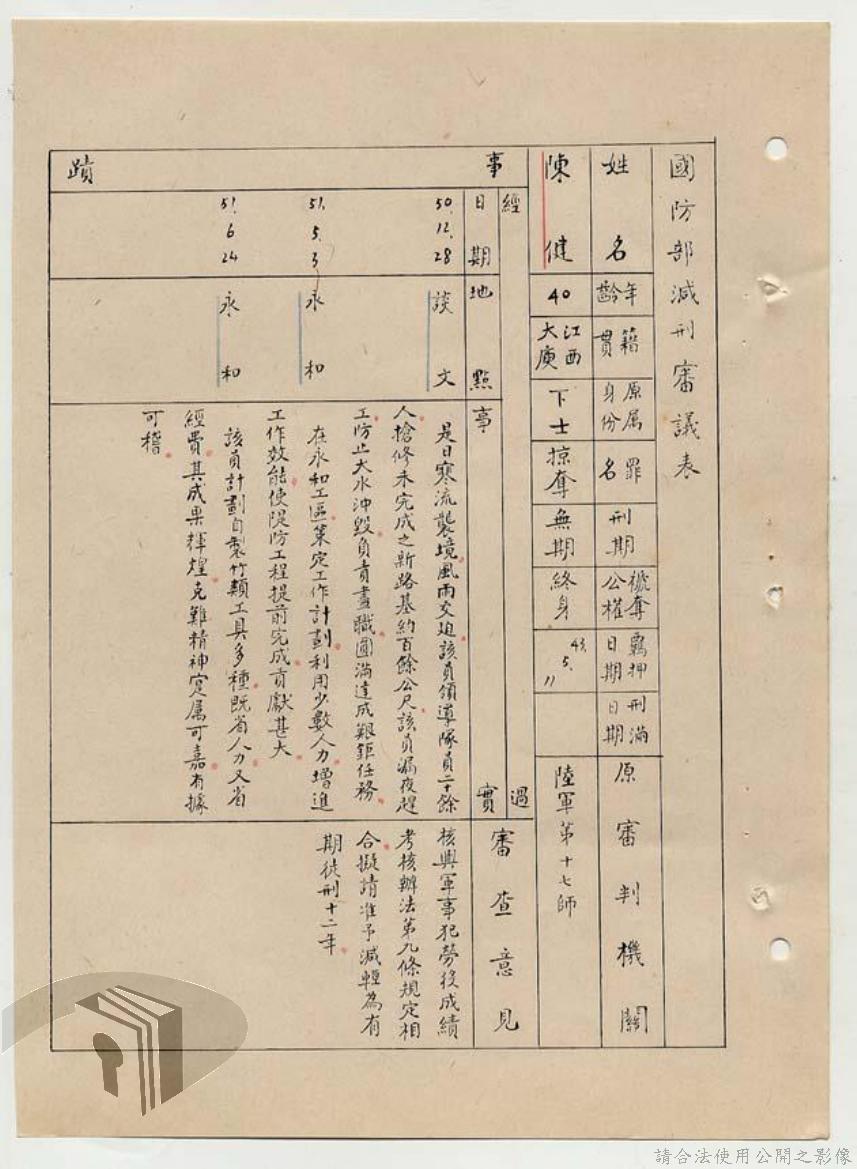 國防部減刑審議表
姓名
年齡
籍貫
原屬身份
罪名
刑期
褫奪公權
羈押日期
刑滿日期
原審判機關
陳健
40
江西大庾
下士
掠奪
無期
終身
43.5.11
陸軍第十七師
事蹟
經過
日期
地點
事實
審查意見
50.12.28
談文
是日寒流襲境風雨交迫該員領導隊員二十餘
人搶修未完成之新路基約百餘公尺該員漏夜趕
工防止大水沖毀負責盡職圓滿達成艱鉅任務
51.5.3
永和
在永和工區策定工作計劃利用少數人力增進
工作效能使隄防工程提前完成貢獻甚大
51.6.24
永和
該員計劃自製竹類工具多種既省人力又省
經費其成果輝煌克難精神寔属可嘉有據
可稽
核與軍事犯勞役成績
考核辦法第九條規定相
合擬請准予減輕為有
期徒刑十二年
請合法使用公開之影像